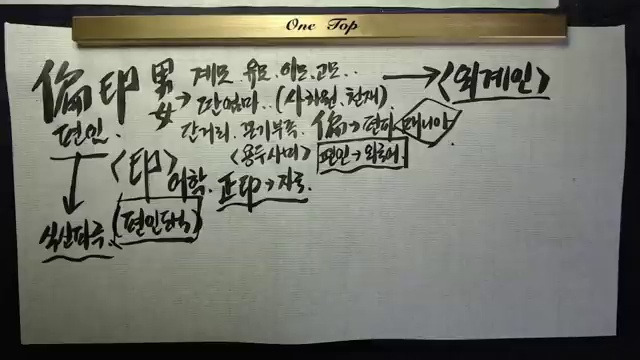 One Top
偏印 男 계모. 유모. 이모. 고모.. → <외계인>
편인. 女 → 만엄마.. (사차원. 천재)
단거리. 끈기부족. 偏 → 편파 <매니아>
<용두사미> 편인 → 외국어.
<印> 어학. 正印 → 자국.
식신파극. (편인도식)